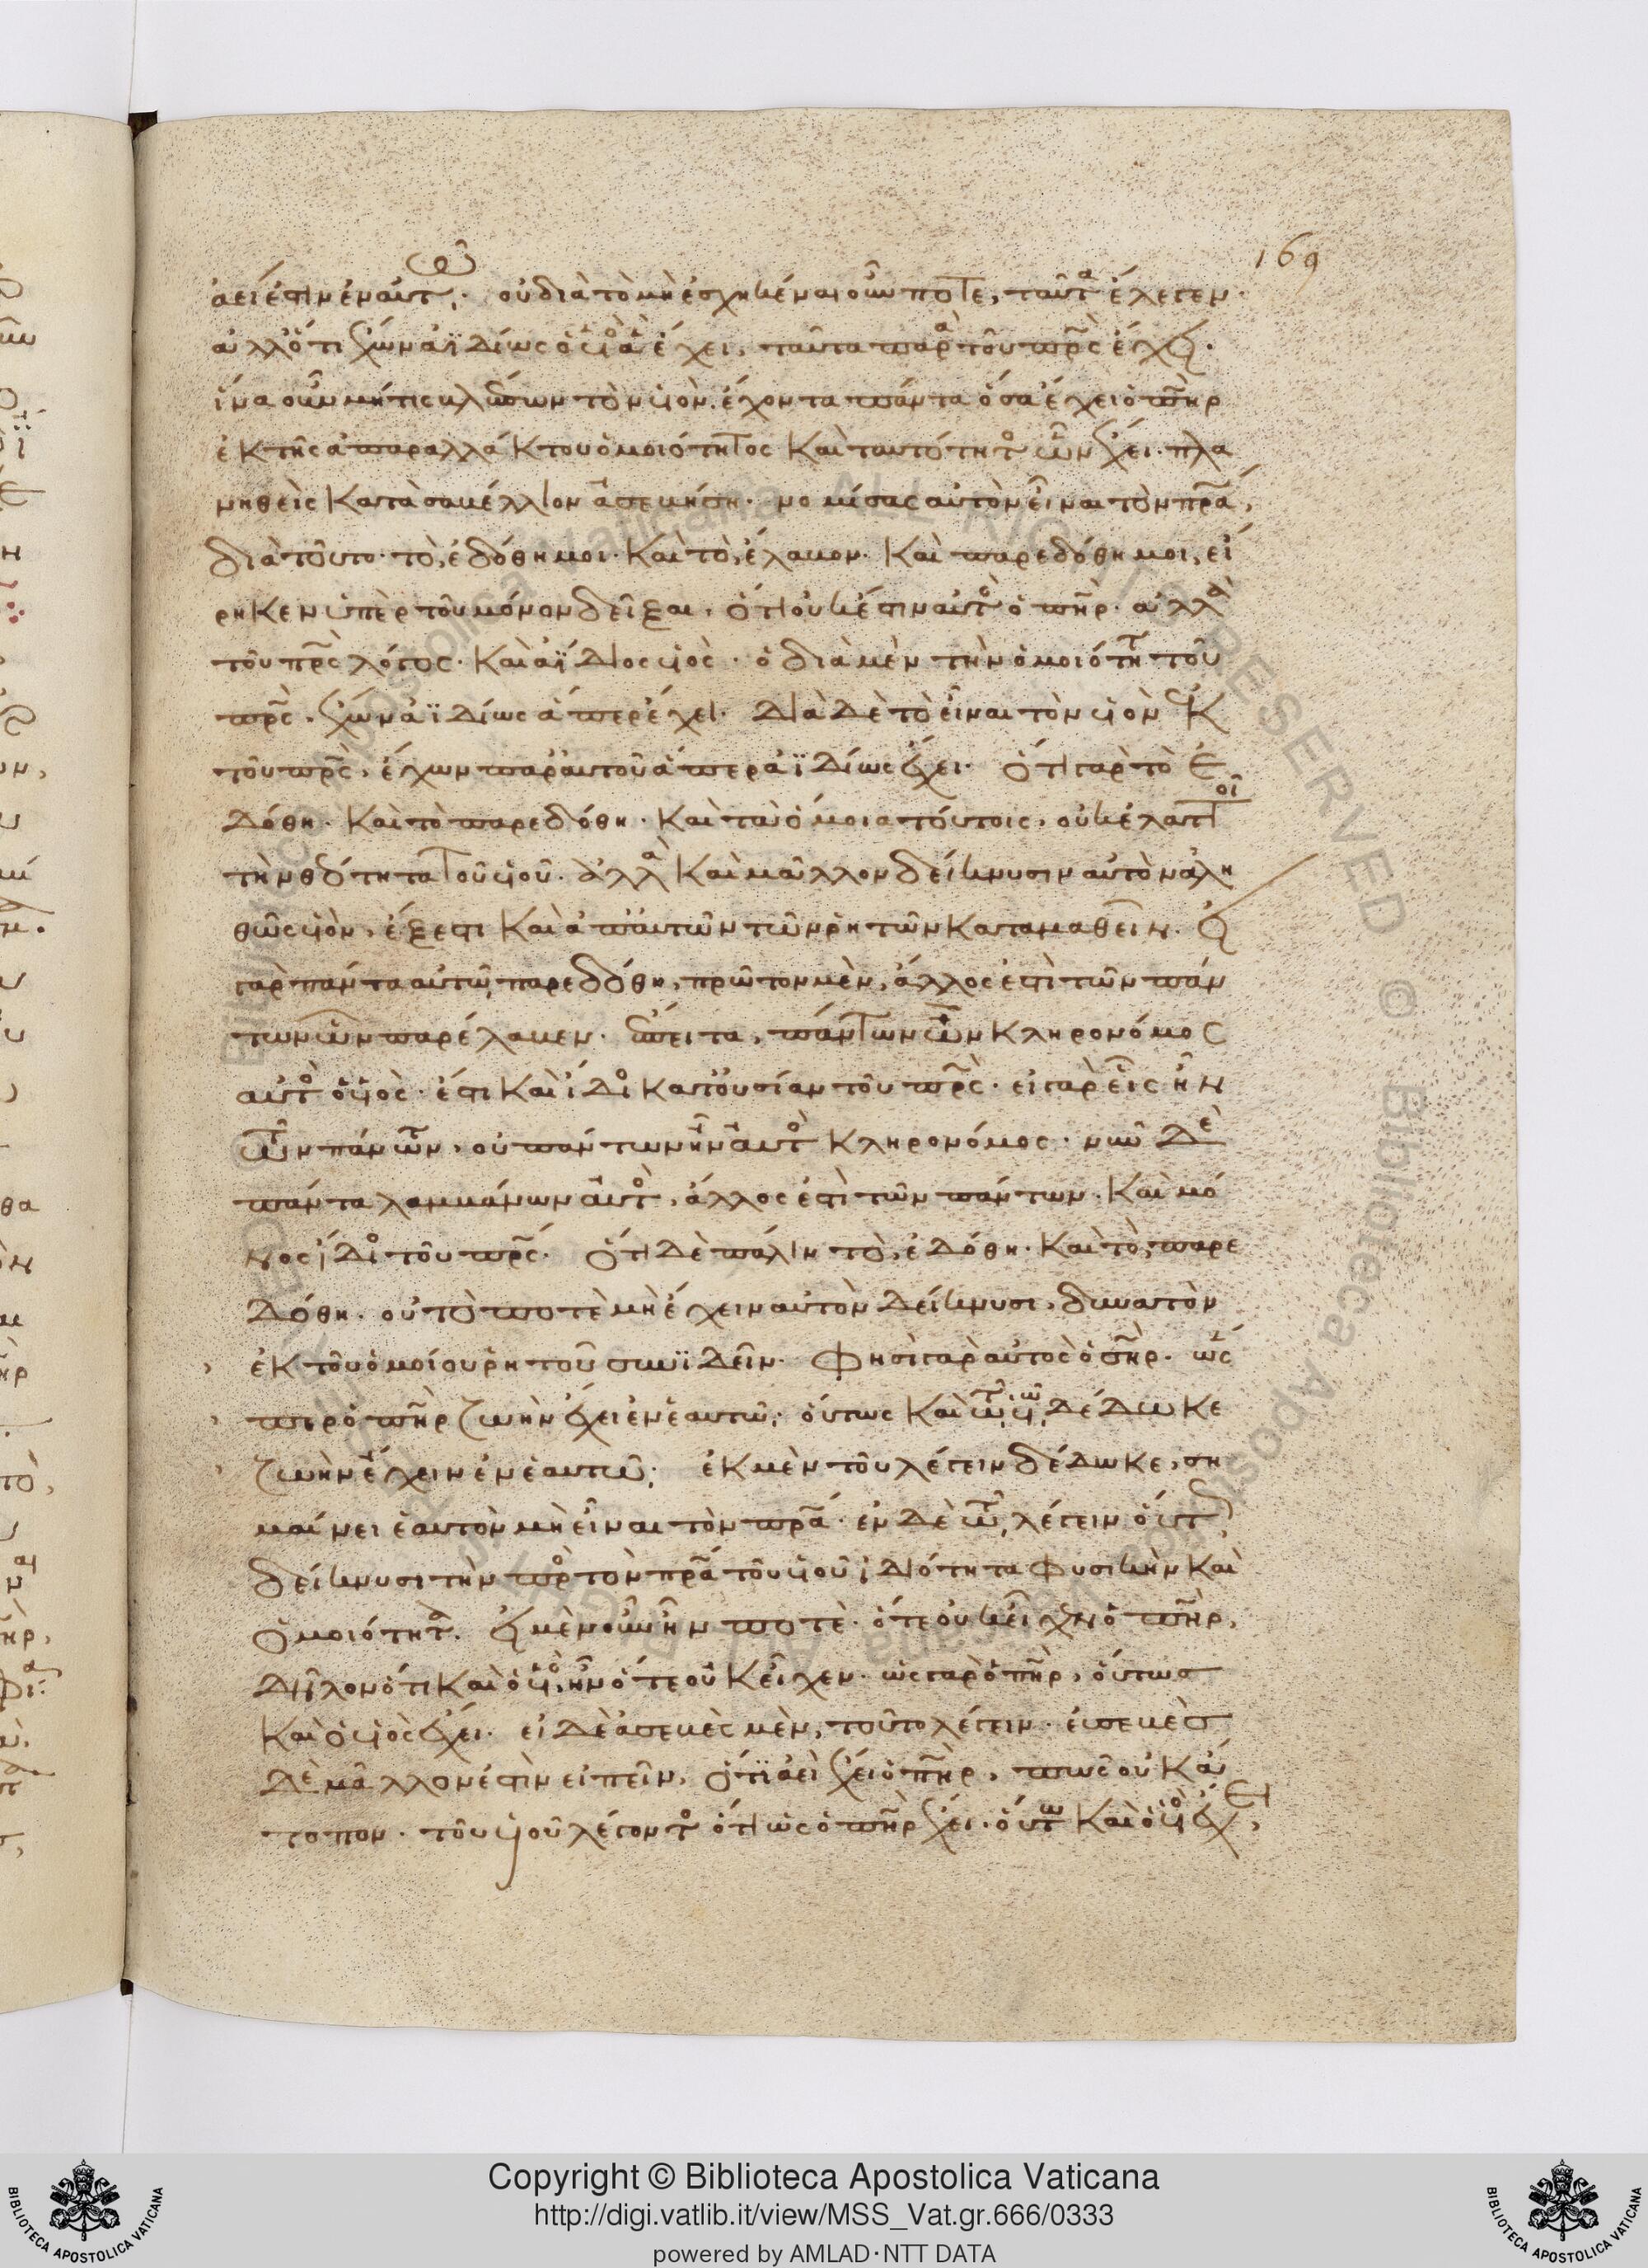 169
ἀεί ἐστιν ἐν αὐτῶ· οὐ διὰ τὸ μὴ ἐσχηκέναι οὖν ποτε, ταῦτα ἔλεγεν·
ἀλλ' ὅτι ἔχων ἀϊδίως ὁ υἱὸς ἃ ἔχει, ταῦτα παρὰ τοῦ πρς ἔχει·
ἵνα οὖν μήτις βλέπων τὸν υἱὸν ἔχοντα πάντα ὅσα ἔχει ὁ πηρ
ἐκ τῆς ἀπαραλλάκτου ὁμοιότητος καὶ ταυτότητος ὧν ἔχει· πλα
νηθεὶς κατὰ σαβέλλιον ἀσεβήση· νομίσας αὐτὸν εἶναι τὸν πρα,
διὰ τοῦτο· τὸ, ἐδόθη μοι· καὶ τὸ, ἔλαβον· καὶ παρεδόθη μοι, εἴ
ρηκεν ὑπὲρ τοῦ μόνον δεῖξαι, ὅτι οὐκ ἔστιν αὐτὸς ὁ πηρ· ἀλλὰ
τοῦ πρς λόγος· καὶ ἀΐδιος υἱός· ὁ διὰ μὲν τὴν ὁμοιότητα τοῦ
πρς, ἔχων ἀϊδίως ἅπερ ἔχει· διὰ δὲ τὸ εἶναι τὸν υἱὸν ἐκ
τοῦ πρς, ἔχων παρ' αὐτοῦ ἅπερ ἀϊδίως ἔχει· ὅτι γὰρ τὸ ἐ
δόθη· καὶ τὸ παρεδόθη· καὶ τὰ ὅμοια τούτοις, οὐκ ἐλαττοῖ
τὴν θεότητα τοῦ υἱοῦ· ἀλλὰ καὶ μᾶλλον δείκνυσιν αὐτὸν ἀλη
θῶς υἱόν, ἔξεστι καὶ ἀπ' αὐτῶν τῶν ῥητῶν καταμαθεῖν· εἰ
γὰρ πάντα αὐτῶ παρεδόθη, πρῶτον μὲν, ἄλλος ἐστὶ τῶν πάν
των ὧν παρέλαβεν· ἔπειτα, πάντων ὢν κληρονόμος
αὐτὸς ὁ υἱός· ἔστι καὶ ἴδιος κατ' οὐσίαν τοῦ πρς· εἰ γὰρ εἷς ἦν
τῶν πάντων, οὐ πάντων ἦν αὐτὸς κληρονόμος· νῦν δὲ
πάντα λαμβάνων αὐτὸς, ἄλλος ἐστὶ τῶν πάντων· καὶ μό
νος ἴδιος τοῦ πρς· ὅτι δὲ πάλιν τὸ, ἐδόθη· καὶ τὸ, παρε
δόθη· οὐ τὸ ποτὲ μὴ ἔχειν αὐτὸν δείκνυσι, δυνατὸν
ἐκ τοῦ ὁμοίου ῥητοῦ συνϊδεῖν· Φησὶ γὰρ αὐτὸς ὁ σηρ· ὥς
περ ὁ πηρ ζωὴν ἔχει ἐν ἑαυτῶ· οὕτως καὶ τῶ υἱῶ δέδωκε
ζωὴν ἔχειν ἐν ἑαυτῶ· ἐκ μὲν τοῦ λέγειν δέδωκε, ση
μαίνει ἑαυτὸν μὴ εἶναι τὸν πρα· ἐν δὲ τῶ λέγειν οὕτως
δείκνυσι τὴν πρὸς τὸν πρα τοῦ υἱοῦ ἰδιότητα φυσικὴν καὶ
ὁμοιότητα· εἰ μὲν οὖν ἦν ποτὲ· ὅτε οὐκ εἶχεν ὁ πηρ,
δῆλον ὅτι καὶ ὁ υἱὸς ἦν ὅτε οὐκ εἶχεν· ὡς γὰρ ὁ πηρ, οὕτως
καὶ ὁ υἱὸς ἔχει· εἰ δὲ ἀσεβὲς μὲν, τοῦτο λέγειν· εὐσεβὲς
δὲ μᾶλλον ἐστὶν εἰπεῖν, ὅτι ἀεὶ ἔχει ὁ πηρ, πῶς οὐκ ἄ
τοπον· τοῦ υἱοῦ λέγοντος ὅτι ὡς ὁ πηρ ἔχει· οὕτω καὶ ὁ υἱὸς ἔχει,
Copyright © Biblioteca Apostolica Vaticana
http://digi.vatlib.it/view/MSS_Vat.gr.666/0333
powered by AMLAD·NTT DATA
BIBLIOTECA APOSTOLICA VATICANA
BIBLIOTECA APOSTOLICA VATICANA